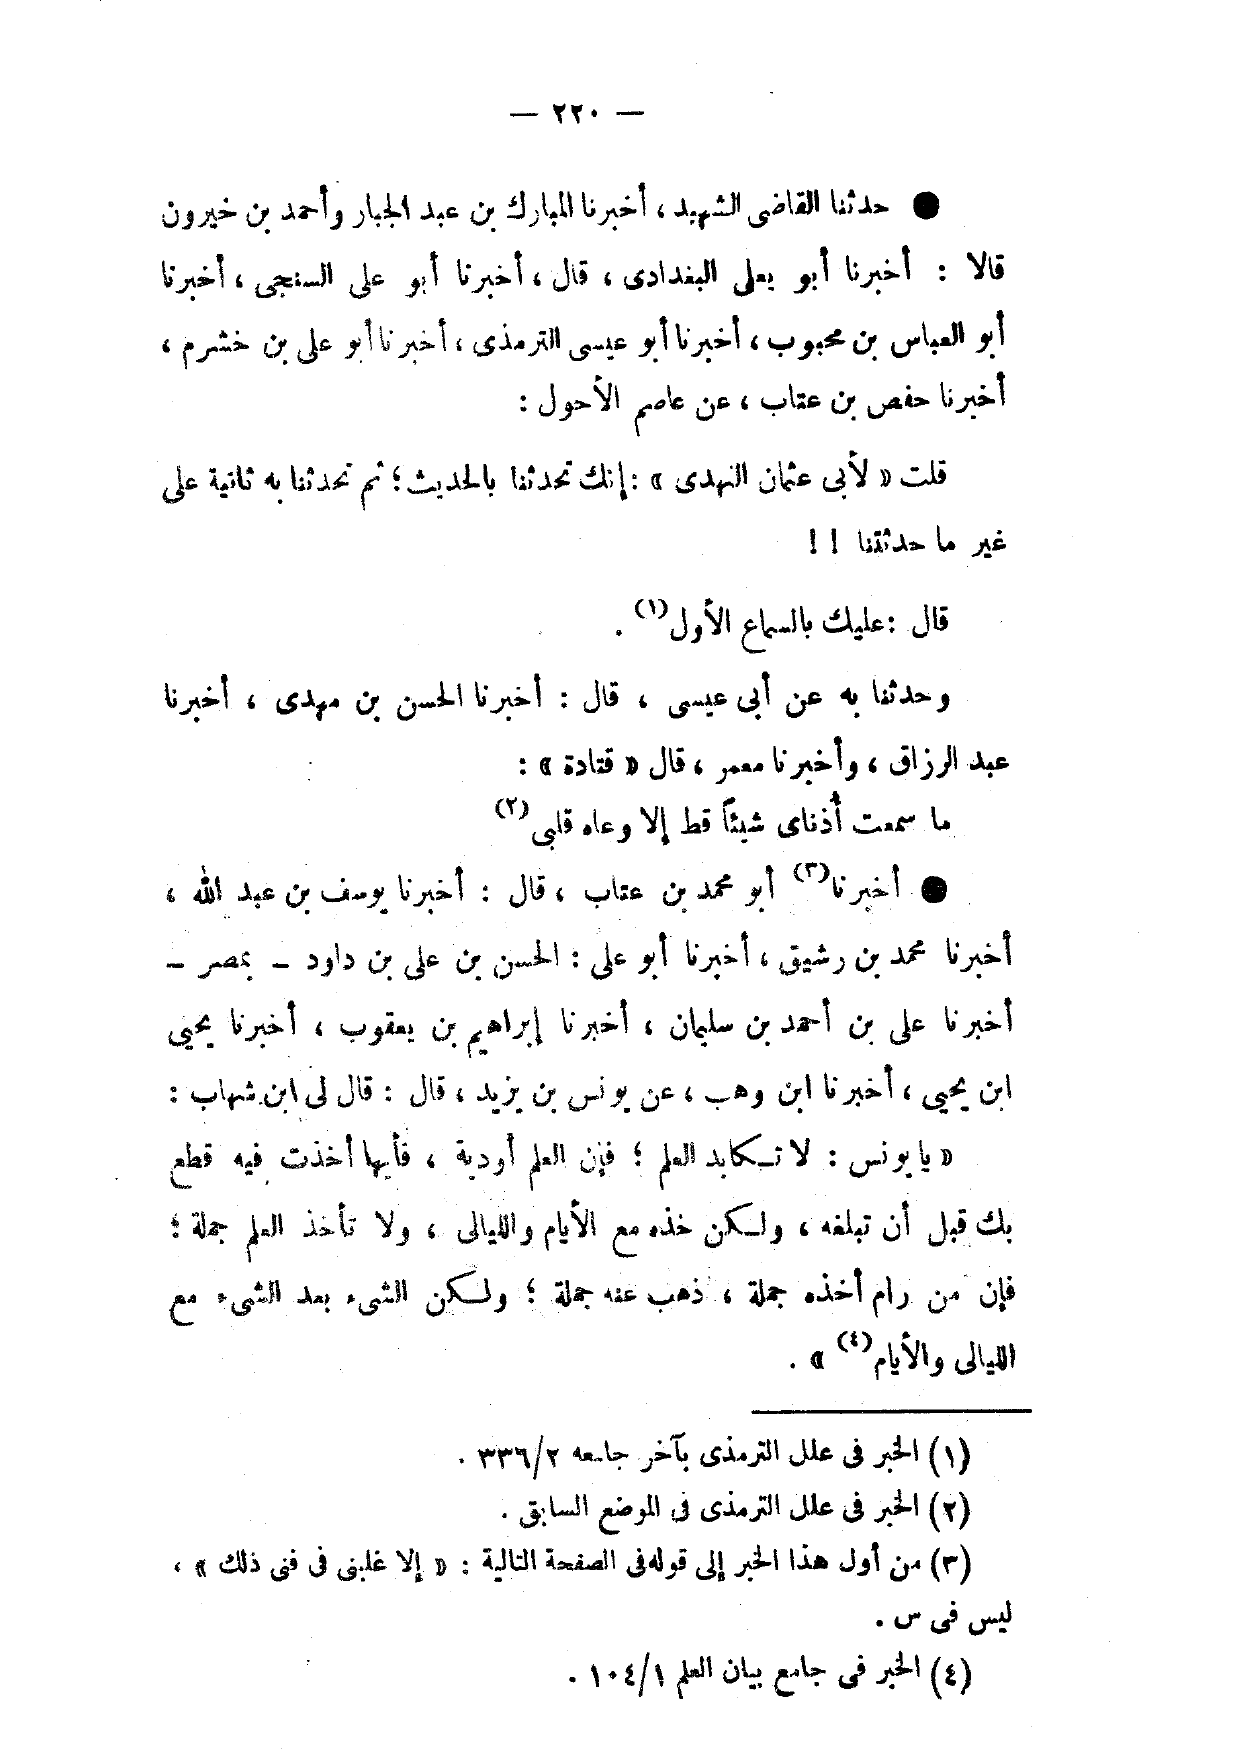 — ٢٢٠ —
● حدثنا القاضى الشهيد ، أخبرنا المبارك بن عبد الجبار وأحمد بن خيرون
قالا : أخبرنا أبو يعلى البغدادى ، قال ، أخبرنا أبو على السنجى ، أخبرنا
أبو العباس بن محبوب ، أخبرنا أبو عيسى الترمذى ، أخبرنا أبو على بن خشرم ،
أخبرنا حفص بن عتاب ، عن عاصم الأحول :
قلت « لأبى عثمان النهدى » : إنك تحدثنا بالحديث ؛ ثم تحدثنا به ثانية على
غير ما حدثتنا ! !
قال : عليك بالسماع الأول (١) .
وحدثنا به عن أبى عيسى ، قال : أخبرنا الحسن بن مهدى ، أخبرنا
عبد الرزاق ، وأخبرنا معمر ، قال « قتادة » :
ما سمعت أُذناى شيئاً قط إلا وعاه قلبى (٢)
● أخبرنا (٣) أبو محمد بن عتاب ، قال : أخبرنا يوسف بن عبد الله ،
أخبرنا محمد بن رشيق ، أخبرنا أبو على : الحسن بن على بن داود – بمصر –
أخبرنا على بن أحمد بن سليمان ، أخبرنا إبراهيم بن يعقوب ، أخبرنا يحيى
ابن يحيى ، أخبرنا ابن وهب ، عن يونس بن يزيد ، قال : قال لى ابن شهاب :
« يا يونس : لا تـكابد العلم ؛ فإن العلم أودية ، فأيها أخذت فيه قطع
بك قبل أن تبلغه ، ولـكن خذه مع الأيام والليالى ، ولا تأخذ العلم جملة ؛
فإن من رام أخذه جملة ، ذهب عنه جملة ؛ ولـكن الشىء بعد الشىء مع
الليالى والأيام (٤) » .
(١) الخبر فى علل الترمذى بآخر جامعه ٣٣٦/٢ .
(٢) الخبر فى علل الترمذى فى الموضع السابق .
(٣) من أول هذا الخبر إلى قوله فى الصفحة التالية : « إلا غلبنى فى فنى ذلك » ،
ليس فى س .
(٤) الخبر فى جامع بيان العلم ١٠٤/١ .